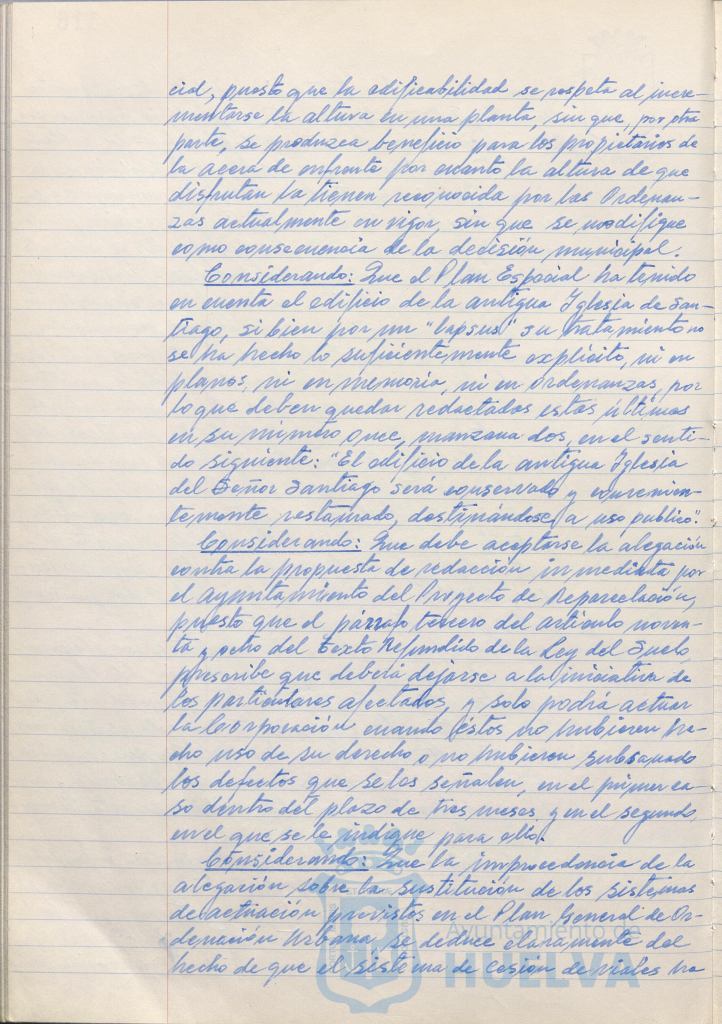 cial, puesto que la edificabilidad se respeta al incre-
mentarse la altura en una planta, sin que, por otra
parte, se produzca beneficio para los propietarios de
la acera de enfrente por cuanto la altura de que
disfrutan la tienen reconocida por las Ordenan-
zas actualmente en vigor, sin que se modifique
como consecuencia de la decisión municipal.
Considerando: Que el Plan Especial ha tenido
en cuenta el edificio de la antigua Iglesia de San-
tiago, si bien por un "lapsus" su tratamiento no
se ha hecho lo suficientemente explícito, ni en
planos, ni en memoria, ni en ordenanzas, por
lo que deben quedar redactadas estas últimas
en su número once, manzana dos, en el senti-
do siguiente: "El edificio de la antigua Iglesia
del Señor Santiago será conservado y convenien-
temente restaurado, destinándose a uso publico".
Considerando: Que debe aceptarse la alegación
contra la propuesta de redacción inmediata por
el ayuntamiento del Proyecto de Reparcelación,
puesto que el párrafo tercero del artículo noven-
ta y ocho del Texto Refundido de la Ley del Suelo,
prescribe que deberá dejarse a la iniciativa de
los particulares afectados, y solo podrá actuar
la Corporación cuando éstos no hubieren he-
cho uso de su derecho o no hubieren subsanado
los defectos que se les señalen, en el primer ca-
so dentro del plazo de tres meses y en el segundo,
en el que se le indique para ello.
Considerando: Que la improcedencia de la
alegación sobre la sustitución de los sistemas
de actuación previstos en el Plan General de Or-
denación Urbana, se deduce claramente del
hecho de que el sistema de cesión de viales ha
Ayuntamiento de
HUELVA